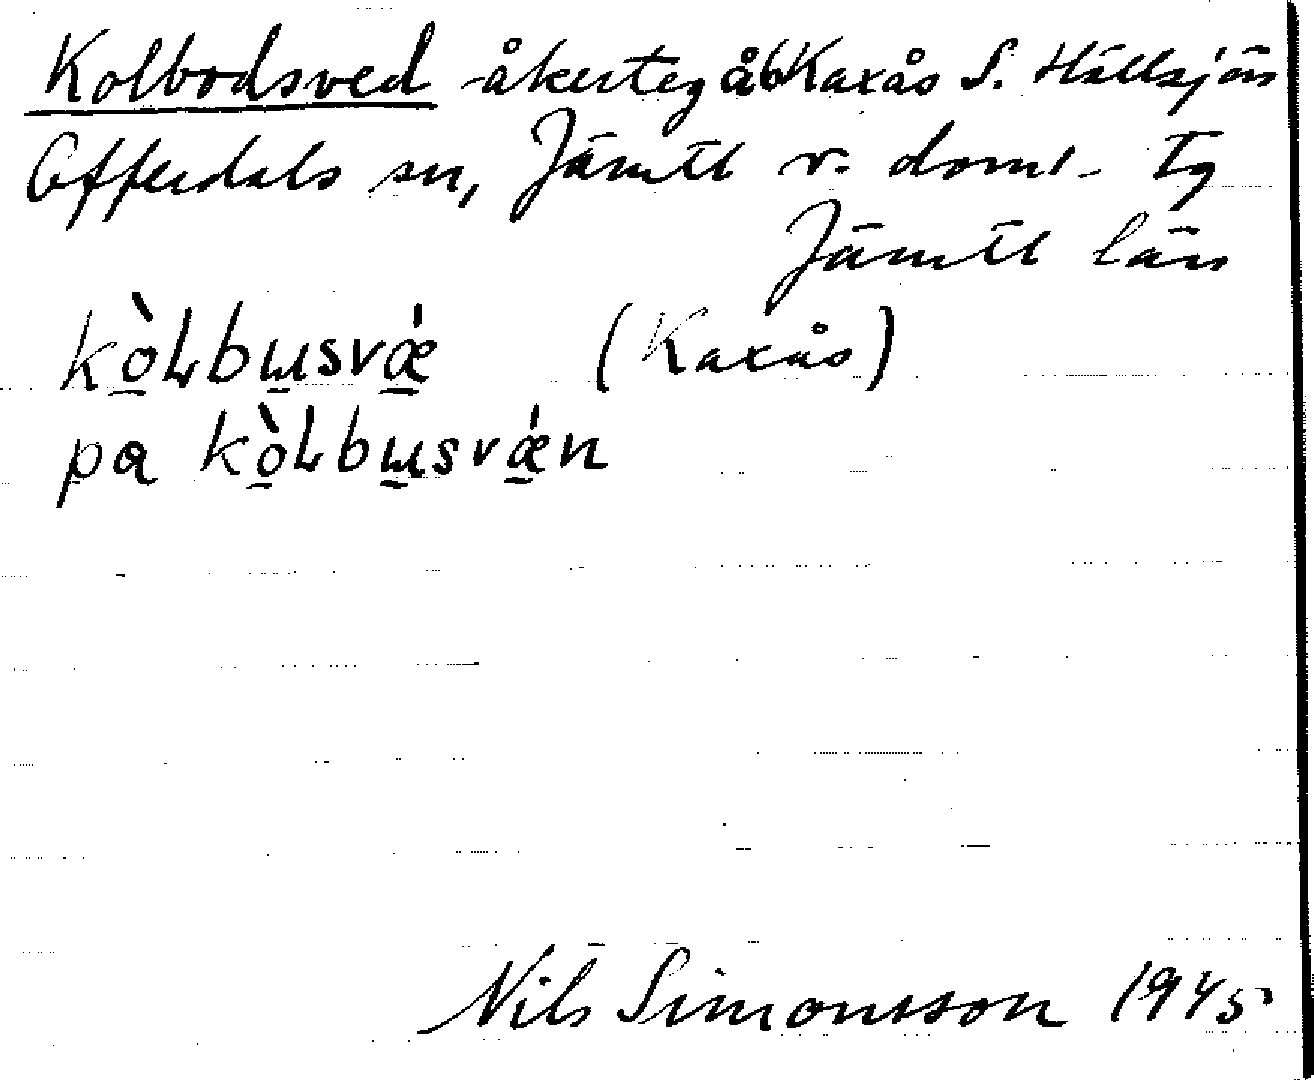 Kolbodsved åkerteg åb Kaxås S. Hällsjön
Offerdals sn, Jämtl v. doms. Tg
Jämtl län
kòḷbɯsvǽ (Kaxås)
pa kòḷbɯsvǽn
Nils Simonsson 1945